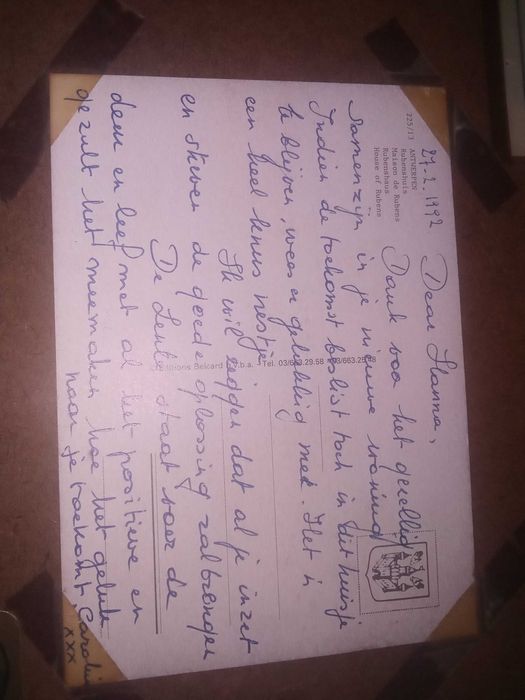 225/13 ANTWERPEN
Rubenshuis
Maison de Rubens
Rubenshaus
House of Rubens
27-2.1992
Dear Hanna,
Dank voor het gezellig
samenzijn in je nieuwe woning
Indien de toekomst beslist toch in dit huisje
te blijven, wees er gelukkig mee. Het is
een heel knus nestje.
Editions Belcard b.v.b.a. - Tel. 03/663.29.58 - 03/663.25.48
Ik wil zeggen dat al je inzet
en streven de goede oplossing zal brengen
De Lente staat voor de
deur en leef met al het positieve en
je zult het meemaken hoe het geluk
naar je toekomt, Carolin
xxx